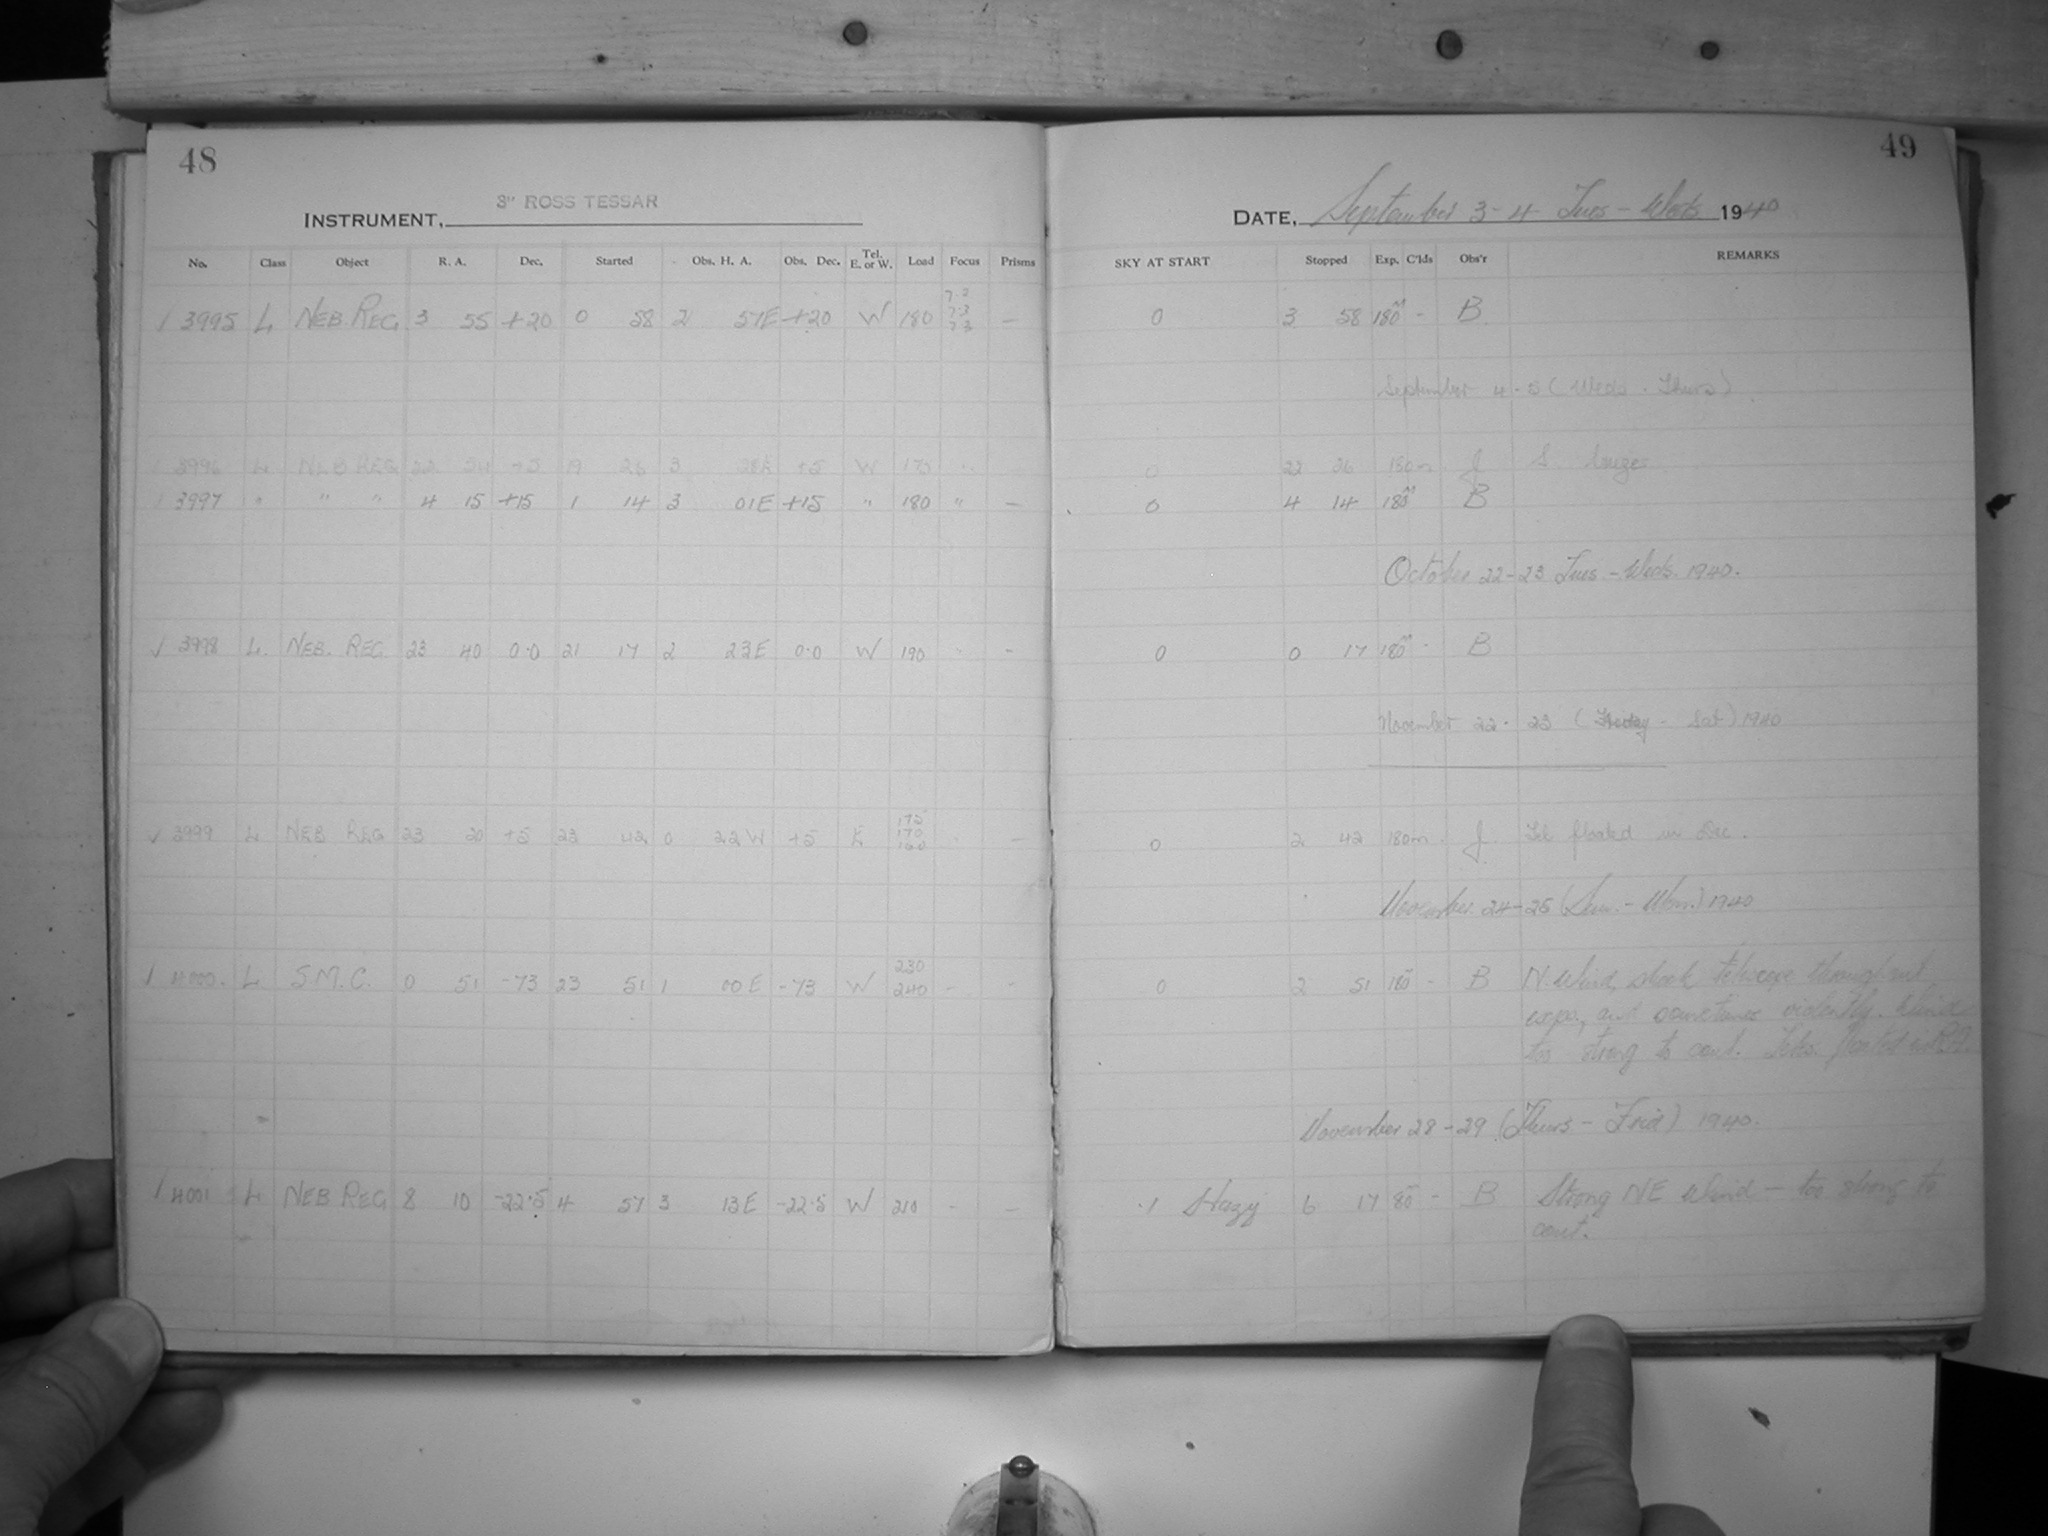 48
3" ROSS TESSAR
INSTRUMENT,
No. Class Object R. A. Dec. Started Obs. H. A. Obs. Dec. Tel. E. or W. Load Focus Prisms
3995 L NEB. REG. 3 55 +20 0 58 2 57E +20 W 180 7.2 7.3 7.3 —
3996 L NEB REG 22 54 +5 19 26 3 28E +5 W 175 "
3997 " " " 4 15 +15 1 14 3 01E +15 " 180 " —
✓ 3998 L. NEB. REG. 23 40 0.0 21 17 2 23E 0.0 W 190 " -
✓ 3999 L NEB REG 23 20 +5 23 42 0 22W +5 E 175 170 160 " —
4000. L S.M.C. 0 51 -73 23 51 1 00E -73 W 230 240 - -
4001 L NEB REG 8 10 -22.5 4 57 3 13E -22.5 W 210 - -
49
DATE, September 3-4 Tues - Weds 1940
SKY AT START Stopped Exp. C'lds Obs'r REMARKS
0 3 58 180m - B.
September 4-5 (Weds - Thurs)
0 22 26 180m J S.
0 4 14 180m B
October 22-23 Tues. - Weds. 1940.
0 0 17 180m - B
November 22-23 (Friday - Sat) 1940
0 2 42 180m J. Tel floated in Dec.
November 24-25 (Sun. - Mon.) 1940
0 2 51 180 - B N. Wind, shook telescope throughout
expo., and sometimes violently. Wind
too strong to cont. Teles. floated in R.A.
November 28-29 (Thurs - Frid) 1940.
.1 Hazy 6 17 80 - B Strong NE Wind — too strong to
cont.